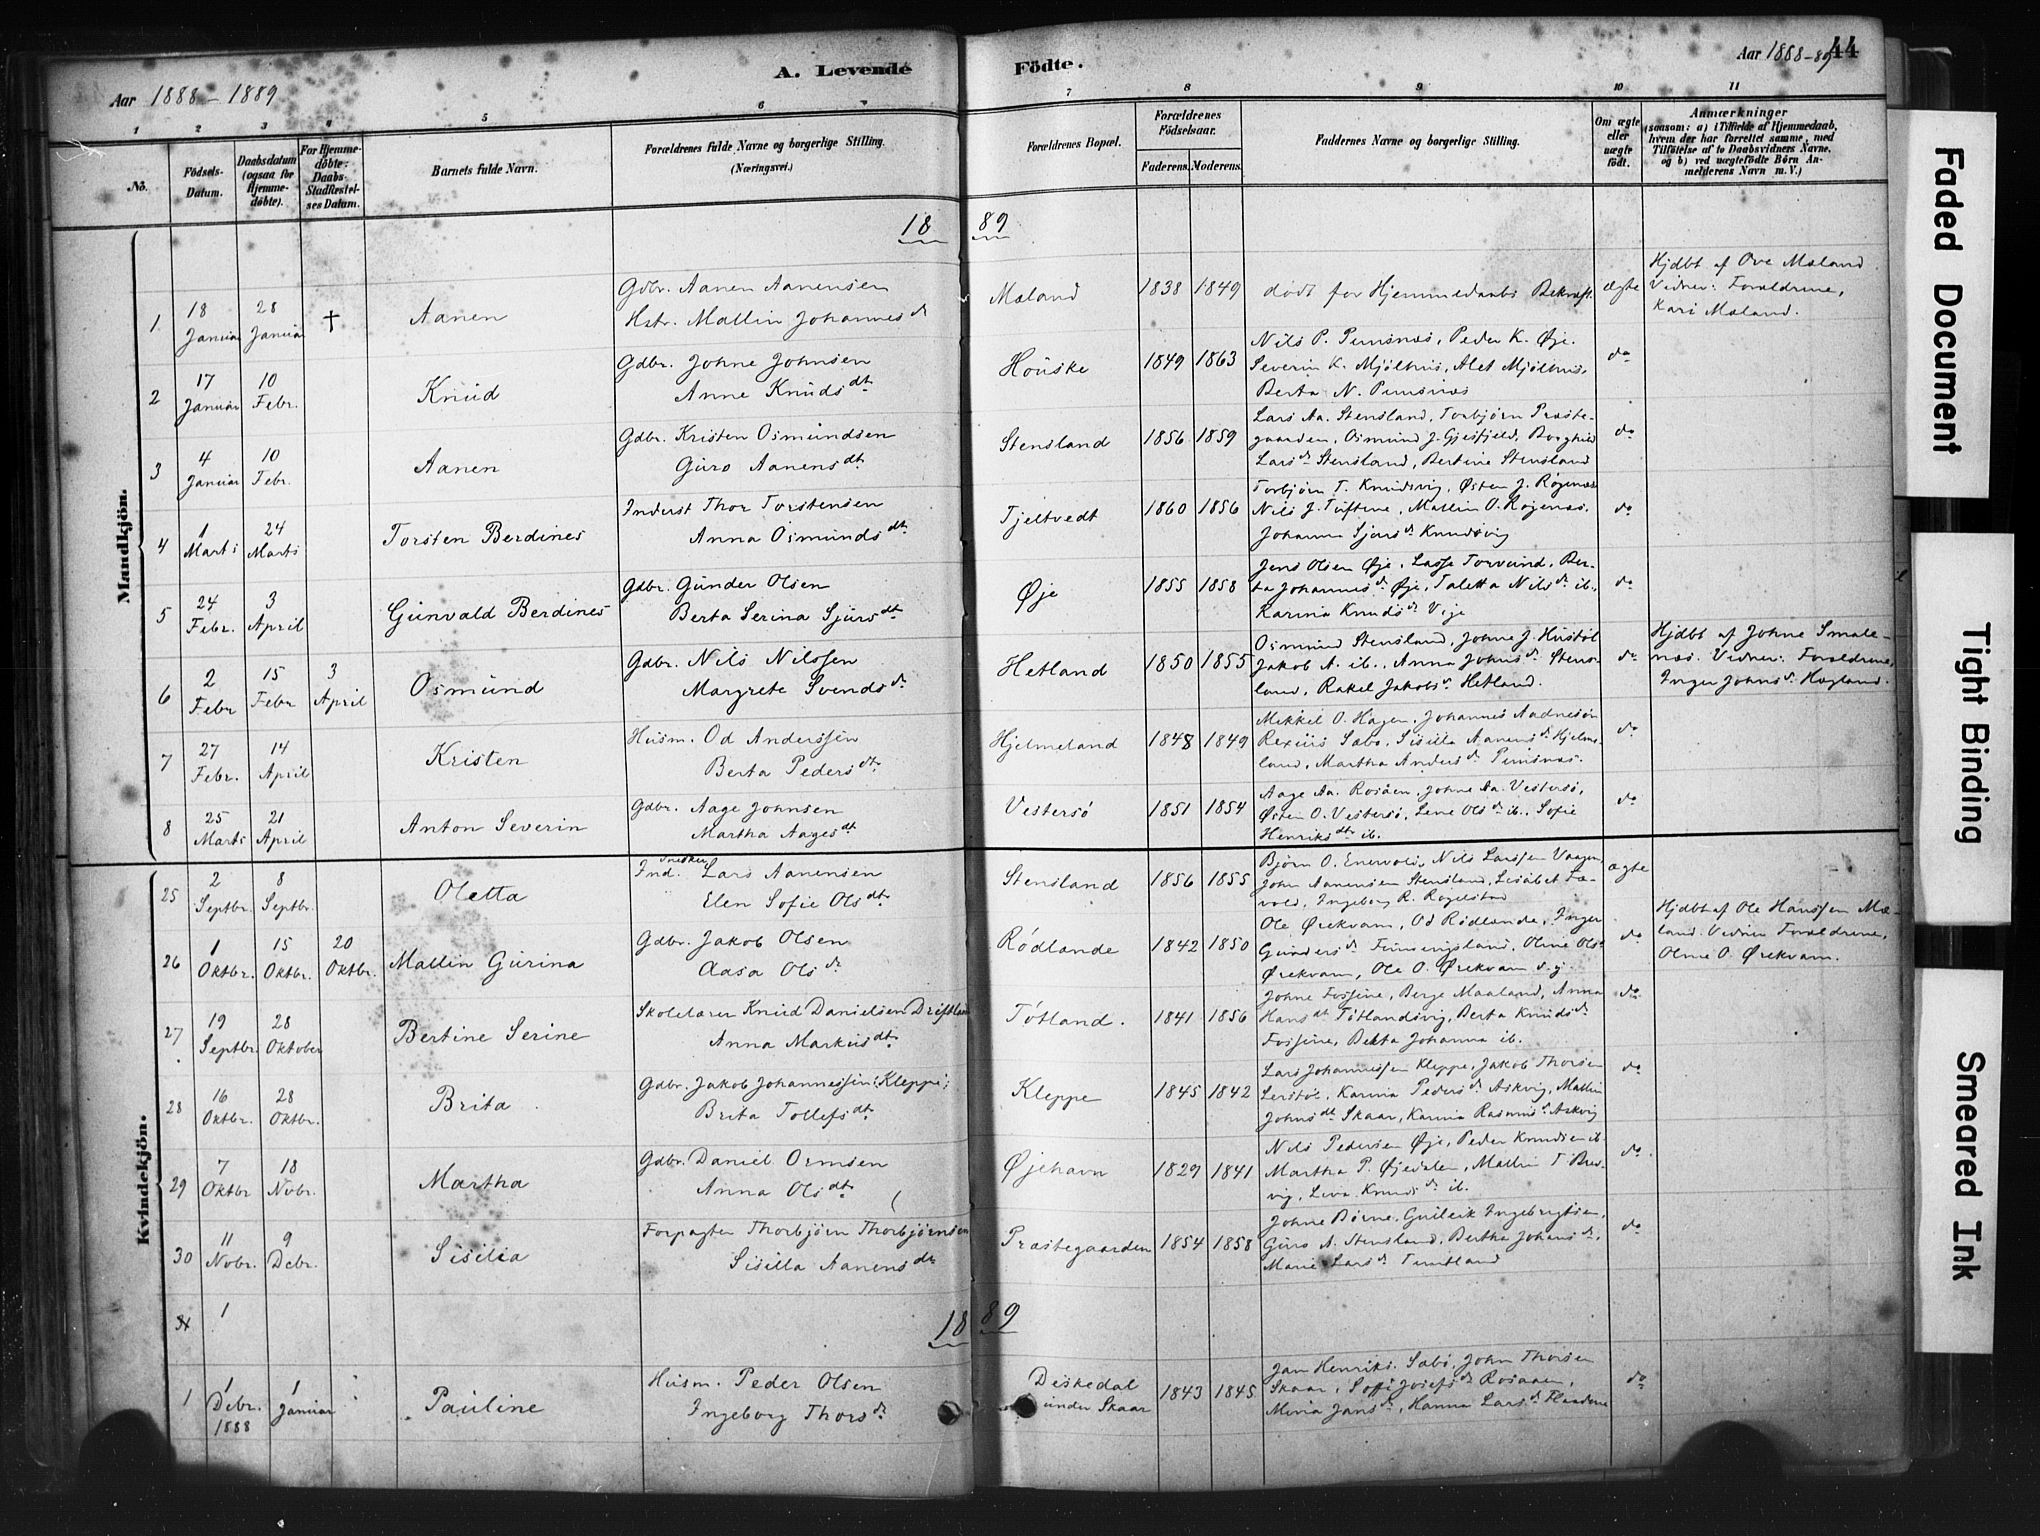 Aar 1888-1889
A. Levende
Födte.
Aar 1888-89
44
1 2 3 4 5 6 7 8 9 10 11
No.
Födsels-
Datum.
Daabsdatum
(ogsaa for
Hjemme-
döbte).
For Hjemme-
döbte:
Daabs-
Stadfæstel-
ses Datum.
Barnets fulde Navn.
Forældrenes fulde Navne og borgerlige Stilling.
(Næringsvei.)
Forældrenes Bopæl.
Forældrenes
Födselsaar.
Faderens.
Moderens.
Faddernes Navne og borgerlige Stilling.
Om ægte
eller
uægte
födt.
Anmærkninger
(saasom: a) i Tilfælde af Hjemmedaab,
hvem der har forrettet samme, med
Tilföielse af to Daabsvidners Navne,
og b) ved uægtefödte Börn An-
melderens Navn m. V.)
Mandkjön.
1889
1
18 Januar
28 Januar
†
Aanen
Gdbr. Aanen Aanensen
Hstr. Mallin Johannesd.
Mæland
1838 1849
dödt før Hjemmedaabs Bekræft.
ægte
Hjdbt af Ove Mæland.
Vidner: Forældrene,
Kari Mæland.
2
17 Januar
10 Febr.
Knud
Gdbr. Johne Johnsen
Anne Knudsdt.
Houske
1849 1863
Nils P. Punsnæs, Peder K. Øje.
Severin K. Mjölhus, Alet Mjölhus,
Berta N. Punsnæs
do
3
4 Januar
10 Febr.
Aanen
Gdbr. Kristen Osmundsen
Guro Aanensdt.
Stensland
1856 1859
Lars Aa. Stensland, Torbjörn Præste-
gaarden, Osmund J. Gjesfjeld, Borghild
Larsdt. Stensland, Bertine Stensland
do
4
1 Marts
24 Marts
Torsten Berdines
Inderst Thor Torstensen
Anna Osmundsdt.
Tjeltvedt
1860 1856
Torbjörn T. Knudsvig, Østen J. Røgenæs
Nils J. Tuftene, Mallin O. Røgenæs,
Johanna Sjursd. Knudsvig
do
5
24 Febr.
3 April
Gunvald Berdines
Gdbr. Gunder Olsen
Berta Serina Sjursdt.
Øje
1855 1858
Jens Olsen Øje, Lasse Torvund, Ber-
ta Johannesd. Øje, Taletta Nilsd. ib.,
Karina Knudsd. Øje
do
6
2 Febr
15 Febr
3 April
Osmund
Gdbr. Nils Nilssen
Margrete Svendsd.
Hetland
1850 1855
Osmund Stensland, Johne J. Hustöl
Jakob A. ib., Anna Johnsd. Stens-
land, Rakel Jakobsd. Hetland.
do
Hjdbt af Johne Smale-
næs. Vidner: Forældrene,
Inger Johnsd. Høgland.
7
27 Febr.
14 April
Kristen
Husm. Od Anderssen
Berta Pedersdt.
Hjelmeland
1848 1849
Mikkel O. Hagen, Johannes Aadnesön
Rexius Sæbø, Sisilla Aanensd. Hjelme-
land, Martha Andersd. Punsnæs.
do
8
25 Marts
21 April
Anton Severin
Gdbr. Aage Johnsen
Martha Aagesdt
Vestersö
1851 1854
Aage Aa. Rosåen, Johne Aa. Vestersö,
Østen O. Vestersö, Lene Olsd. ib., Sofie
Henriksdt. ib.
do
Kvindekjön.
25
2 Septbr.
8 Septbr.
Oletta
Ind. Snedker Lars Aanensen
Elen Sofie Olsdt.
Stensland
1856 1855
Björn O. Enervold, Nils Larssen Vaagen,
John Aanensen Stensland, Lisabet Fæ-
vold, Ingeborg R. Røgelstad
ægte
26
1 Oktbr.
15 Oktbr.
20 Oktbr.
Mallin Gurina
Gdbr. Jakob Olsen
Aasa Olsd.
Rödlande
1842 1850
Ole Ørekvam, Od Rødlande, Inger
Gundersd. Funningsland, Oline Olsd.
Ørekvam, Ole O. Ørekvam s. g.
do
Hjdbt af Ole Hanssen Mæ-
land. Vidner Forældrene,
Oline O. Ørekvam.
27
19 Septbr.
28 Oktober
Bertine Serine
Skolelærer Knud Danielsen Driftland
Anna Markusdt.
Tötland.
1841 1856
Johne Fossine, Berge Maaland, Anna
Hansdt Tötlandsvig, Berta Knudsd.
Fossine, Berta Johanna ib.
do
28
16 Oktbr.
28 Oktbr.
Brita
Gdbr. Jakob Johannessen (Kleppe)
Brita Tollefsdt.
Kleppe
1845 1842
Lars Johannessen Kleppe, Jakob Thorsen
Lerstöl, Karina Pedersd. Askvig, Mallin
Johnsdt Skaar, Karina Rasmusd. Askvig
do
29
7 Oktbr
18 Novbr.
Martha
Gdbr. Daniel Ormsen
Anna Olsdt.
Øjehavn
1829 1841
Nils Pedersen Øje, Peder Knudsen ib.
Martha P. Øjedalen, Mallin T. Bred-
vig, Liva Knudsd. ib.
do
30
11 Novbr.
9 Debr.
Sisilia
Forpagter Thorbjörn Thorbjörnsen
Sisilla Aanensdt.
Præstegaarden
1854 1858
Johne Börne, Guileik Ingebrigtsen,
Guro A. Stensland, Bertha Johansd.,
Marie Larsd. Tuntland
do
31
1
1889
1
1 Debr. 1888
1 Januar
Pauline
Husm. Peder Olsen
Ingeborg Thorsd.
Diskedal
under Skaar
1843 1845
Jan Henriks. Sæbö, John Thorsen
Skaar, Sofie Josefsd. Rosaaen,
Miria Jansd., Hanna Larsd. Flaadene
do
Faded Document
Tight Binding
Smeared Ink